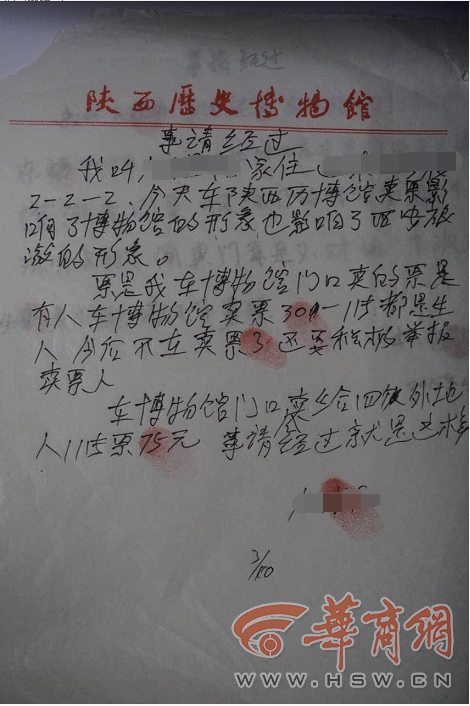 陕西历史博物馆
事请经过
我叫 家住
2-2-2、今天车陕西历博博馆卖票影
响了博物馆的形象也影响了西安旅
游的形象。
票是我车博物馆门口卖的票是
有人车博物馆卖票30 一115都是生
人 今后不在卖票了还要积极举报
卖票人
车博物馆门口卖给四 外地
人11 票75元 事请经过就是这样
3/10
华商网
WWW.HSW.CN